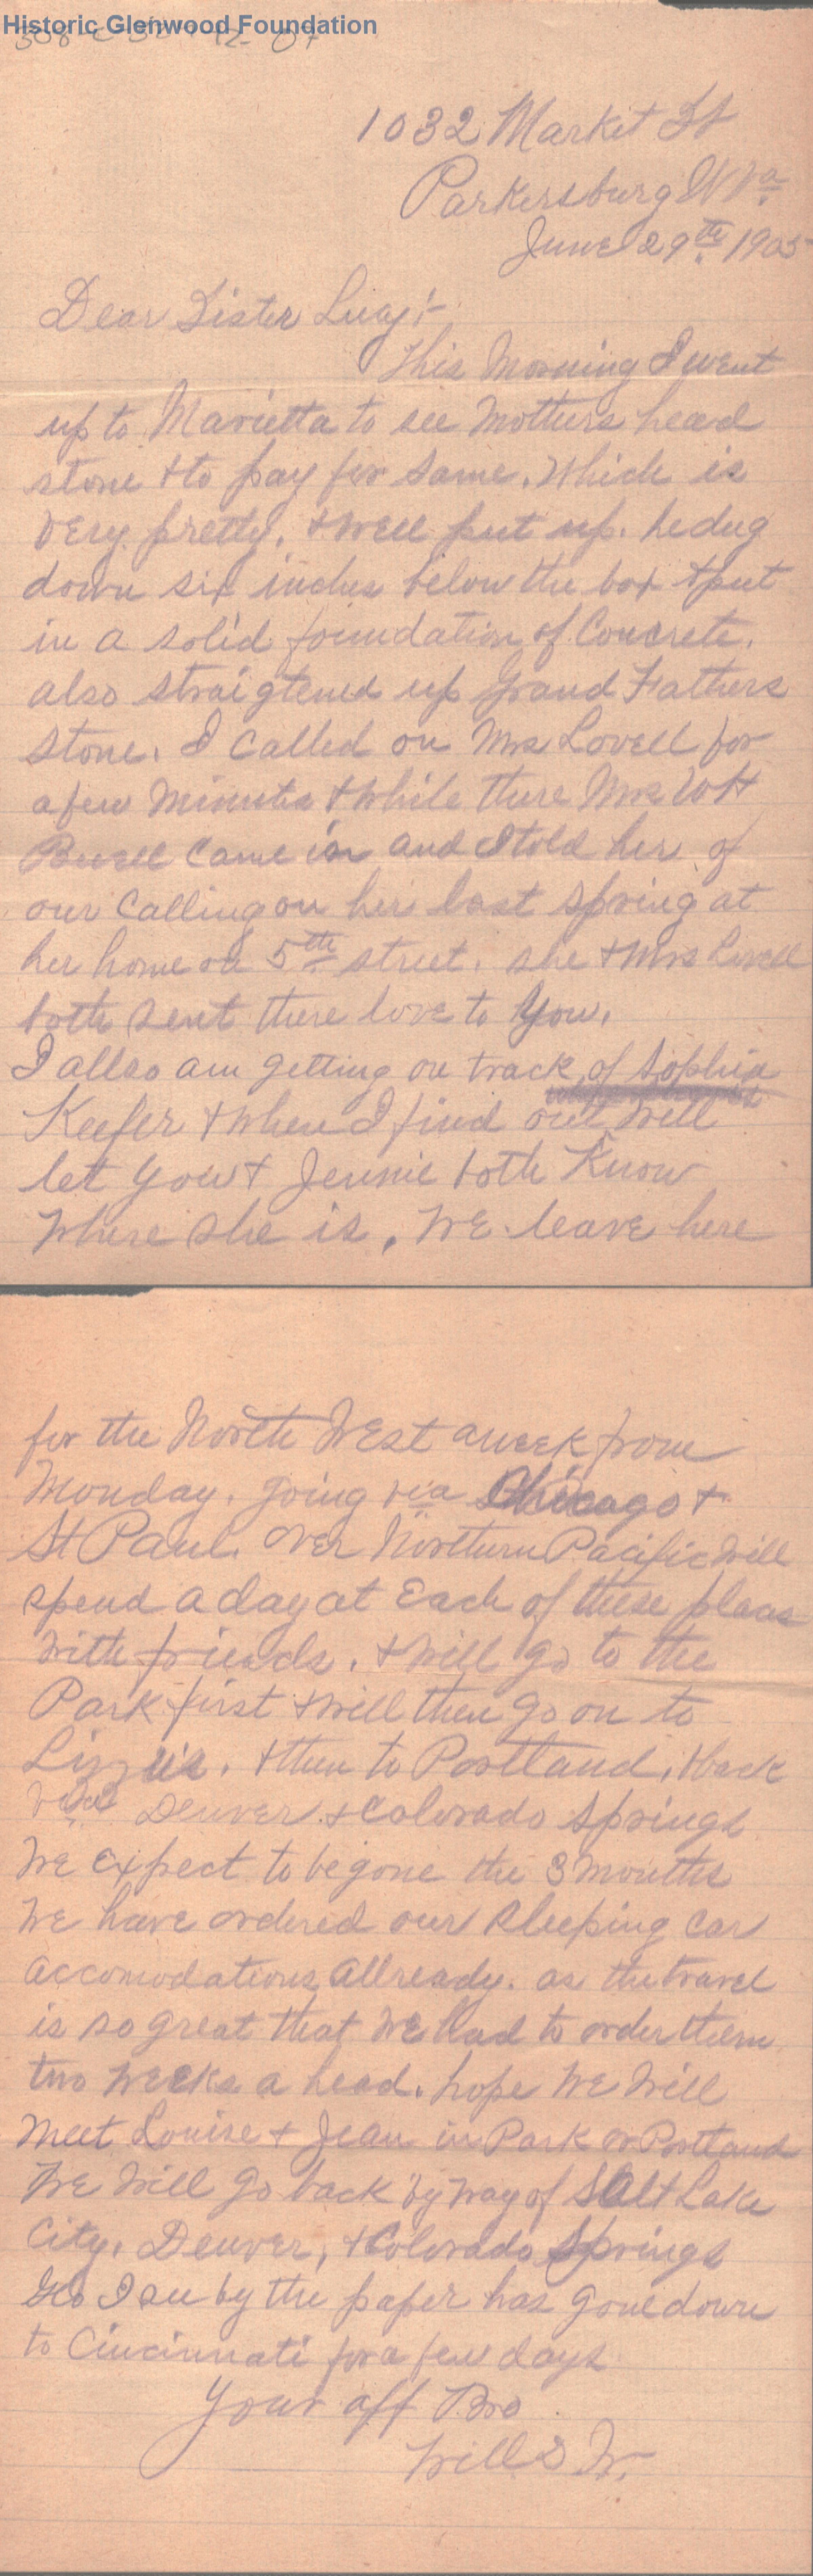 Historic Glenwood Foundation
1032 Market St
Parkersburg W Va.
June 29th. 1905
Dear Sister Lucy:-
This Morning I went
up to Marietta to see Mothers head
stone & to pay for same. Which is
very pretty. & well put up. he dug
down six inches below the box & put
in a solid foundation of Concrete.
also straigtened up Grand Fathers
stone. I called on Mrs Lovell for
a few Minutes & while there Mrs W H
Buell Came in and I told her of
our Calling on her last Spring at
her home on 5th street. she & Mrs Lovell
both sent there love to You.
I allso am getting on track of Sophia
Keefer & when I find out will
let You & Jennie both Know
Where she is. We leave here
for the North West a week from
Monday. going via Chicago &
St Paul. over Northern Pacific will
spend a day at Each of these places
with friends. & will go to the
Park first & will then go on to
Lizzie's. & then to Portland. & back
via Denver & Colorado Springs
We expect to be gone the 3 months
We have ordered our Sleeping Car
accomodations allready. as the travel
is so great that we had to order them
two weeks a head. hope We Will
Meet Louise & Jean in Park or Portland
We Will go back by way of Salt Lake
City. Denver, & Colorado Springs
Geo I see by the paper has gone down
to Cincinnati for a few days
Your aff Bro
Will